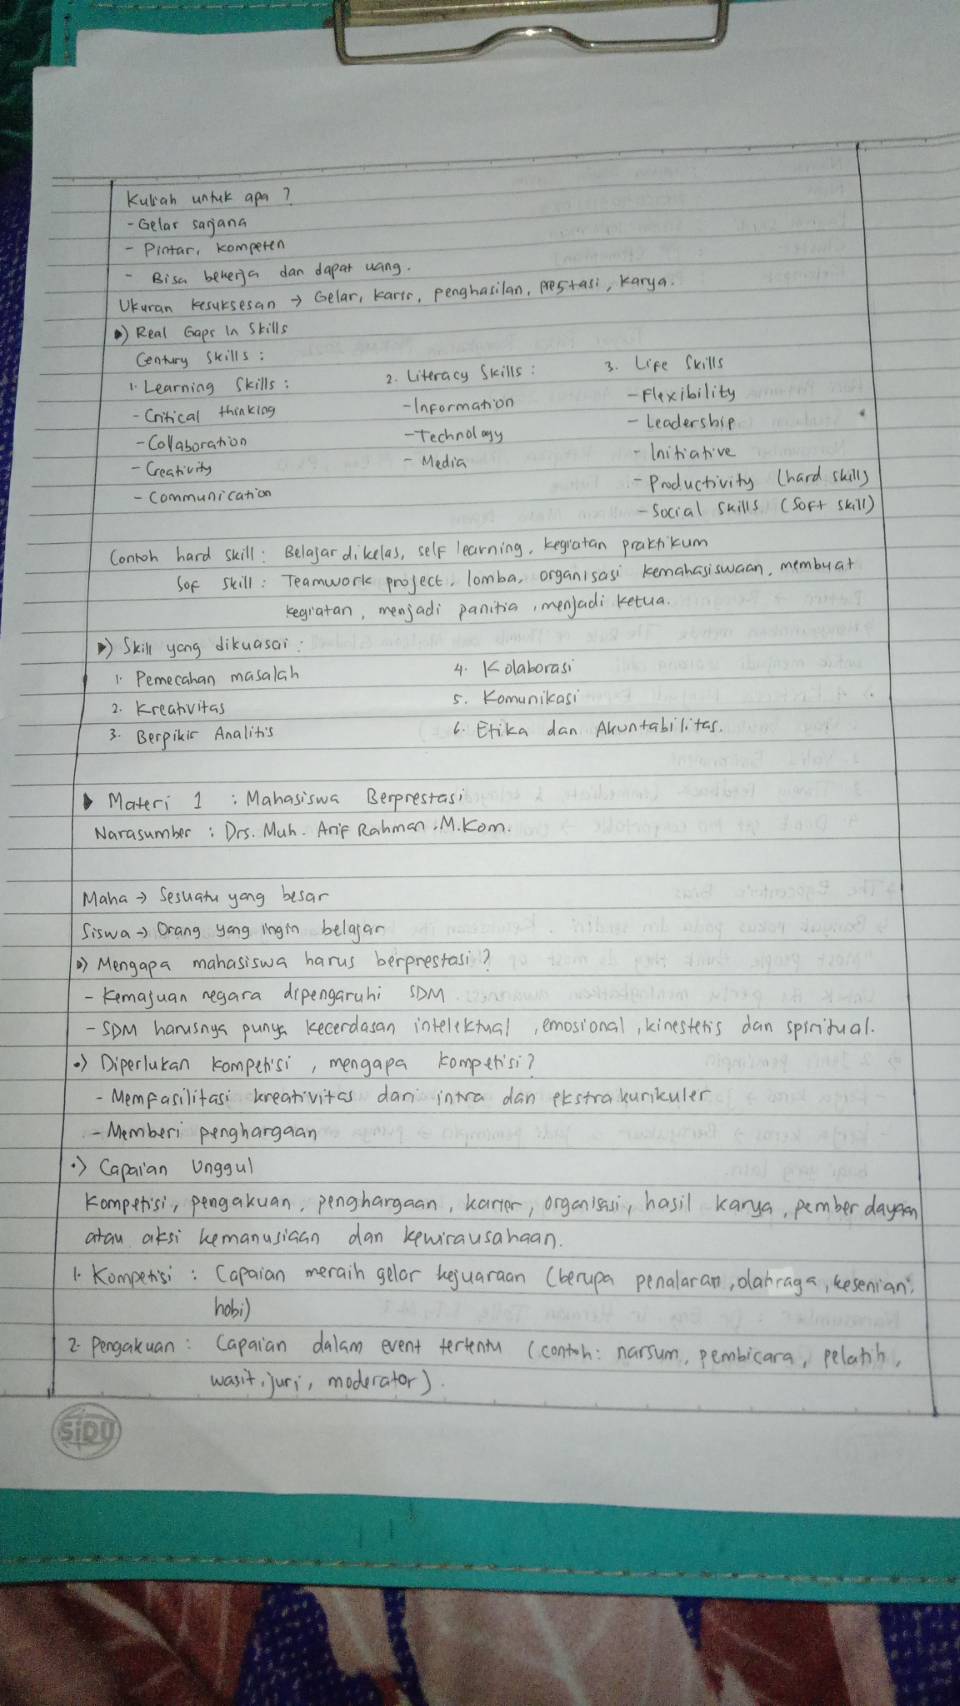 Kuliah untuk apa ?
- Gelar sarjana
- Pintar, kompeten
- Bisa bekerja dan dapat uang.
Ukuran kesuksesan → Gelar, karir, penghasilan, prestasi, karya.
•) Real Gaps In Skills
Century Skills :
1. Learning Skills : 2. Literacy Skills : 3. Life Skills
- Critical thinking - Information - Flexibility
- Collaboration - Technology - Leadership
- Creativity - Media - Initiative
- Communication - Productivity (hard skill)
- Social Skills (Soft skill)
Contoh hard skill : Belajar dikelas, self learning, kegiatan praktikum
Sof skill : Teamwork project, lomba, organisasi kemahasiswaan, membuat
kegiatan, menjadi panitia, menjadi ketua.
•) Skill yang dikuasai :
1. Pemecahan masalah 4. Kolaborasi
2. Kreativitas 5. Komunikasi
3. Berpikir Analitis 6. Etika dan Akuntabilitas.
▶ Materi 1 : Mahasiswa Berprestasi
Narasumber : Drs. Muh. Arif Rahman, M.Kom.
Maha → Sesuatu yang besar
Siswa → Orang yang ingin belajar
•) Mengapa mahasiswa harus berprestasi ?
- Kemajuan negara dipengaruhi SDM
- SDM harusnya punya kecerdasan intelektual, emosional, kinestetis dan spiritual.
•) Diperlukan kompetisi, mengapa kompetisi ?
- Memfasilitasi kreativitas dari intra dan ekstrakurikuler
- Memberi penghargaan
•) Capaian Unggul
Kompetisi, pengakuan, penghargaan, karier, organisasi, hasil karya, pemberdayaan
atau aksi kemanusiaan dan kewirausahaan.
1. Kompetisi : Capaian meraih gelar kejuaraan (berupa penalaran, olahraga, kesenian,
hobi)
2. Pengakuan : Capaian dalam event tertentu (contoh: narsum, pembicara, pelatih,
wasit, juri, moderator).
SiDU